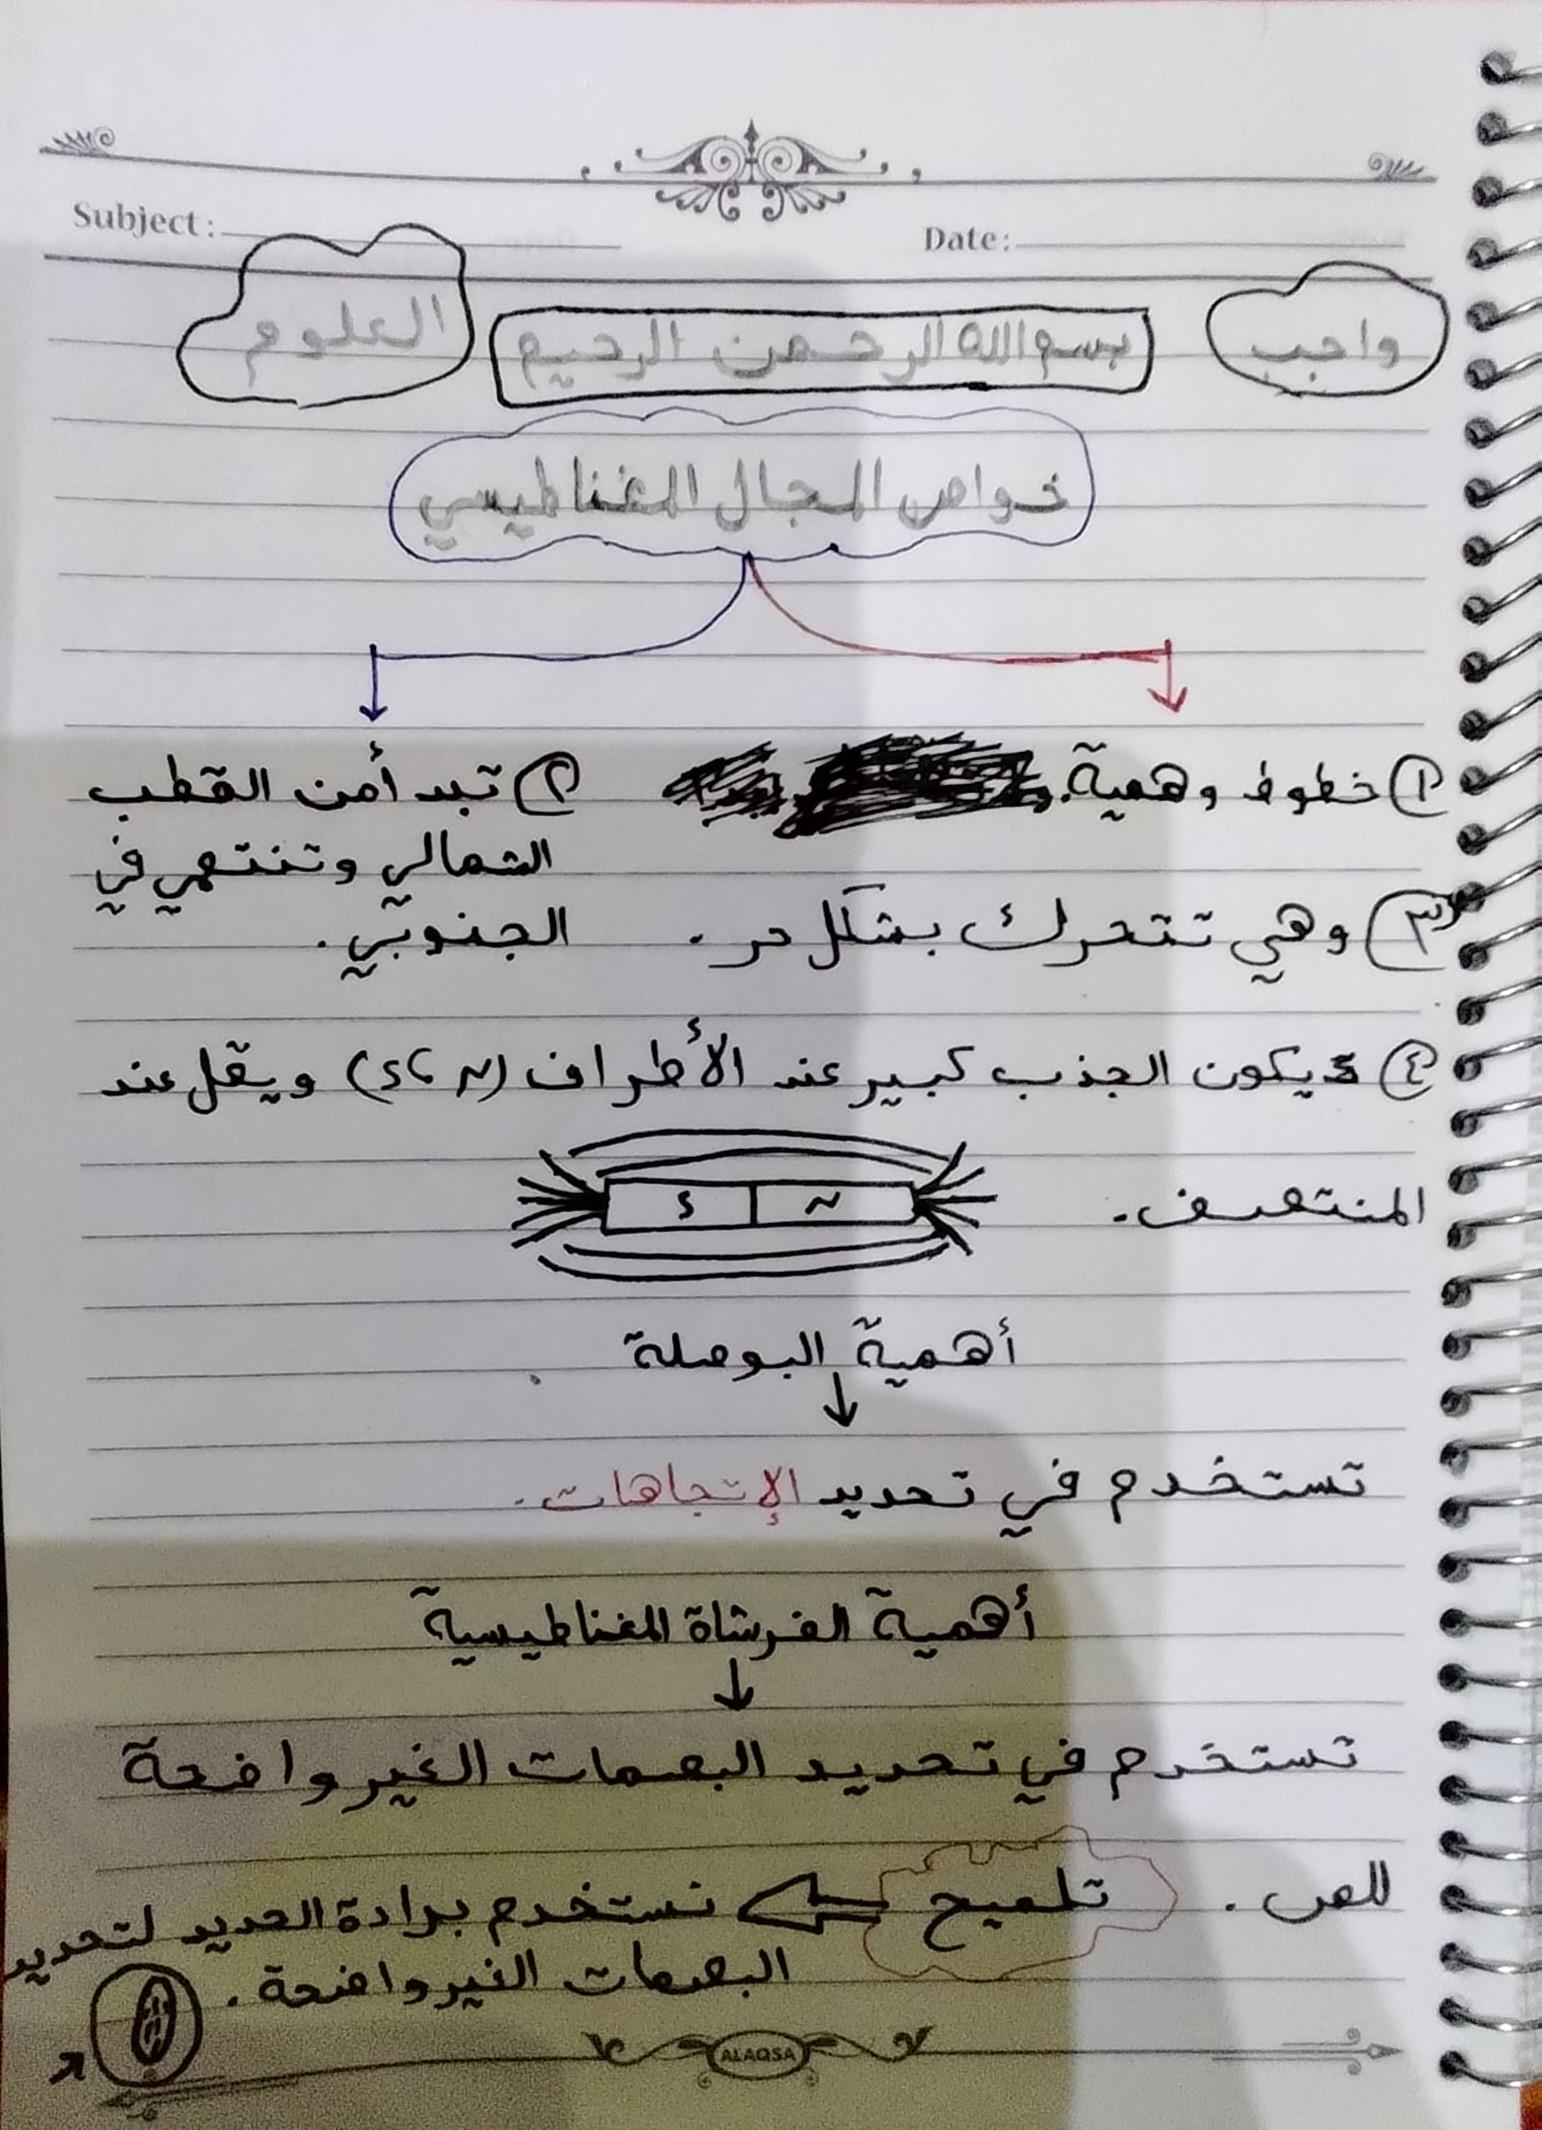 Subject: Date:
واجب بسم الله الرحمن الرحيم العلوم
خواص المجال المغناطيسي
١) خطوط وهمية.
٢) تبدأ من القطب
الشمالي وتنتهي في
الجنوبي.
٣) وهي تتحرك بشكل حر.
٤) يكون الجذب كبير عند الأطراف (ى، ى) ويقل عند
المنتصف.
أهمية البوصلة
تستخدم في تحديد الإتجاهات.
أهمية الفرشاة المغناطيسية
تستخدم في تحديد البصمات الغير واضحة
للص. تلميح نستخدم برادة الحديد لتحديد
البصمات الغير واضحة.
ALAQSA